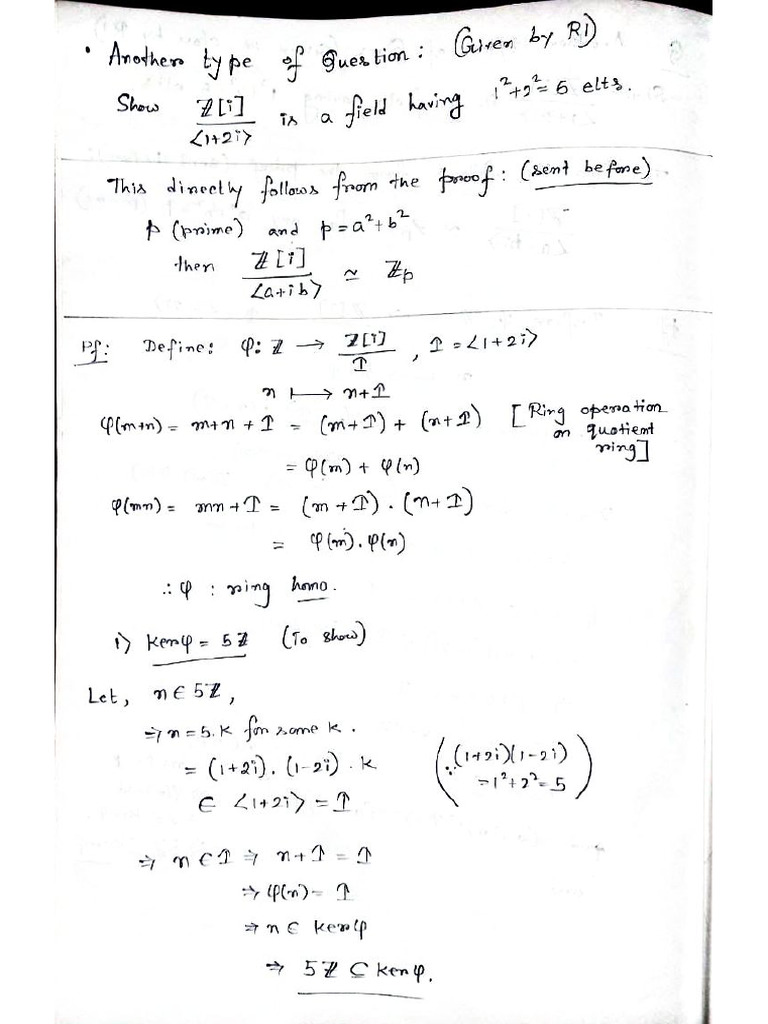 • Another type of Question: (Given by RI)
Show Z[i]/<1+2i> is a field having 1²+2²=5 elts.
This directly follows from the proof: (sent before)
p (prime) and p=a²+b²
then Z[i]/<a+ib> ≃ Zp
Pf: Define: φ: Z → Z[i]/I, I = <1+2i>
n ↦ n+I
φ(m+n) = m+n+I = (m+I) + (n+I) [Ring operation on quotient ring]
= φ(m) + φ(n)
φ(mn) = mn+I = (m+I).(n+I)
= φ(m).φ(n)
∴ φ : ring homo.
i) kerφ = 5Z (To show)
Let, n∈5Z,
⇒ n=5.k for some k.
= (1+2i).(1-2i).k (∵ (1+2i)(1-2i) = 1²+2²=5)
∈ <1+2i> = I
⇒ n∈I ⇒ n+I = I
⇒ φ(n) = I
⇒ n∈ kerφ
⇒ 5Z ⊆ kerφ.